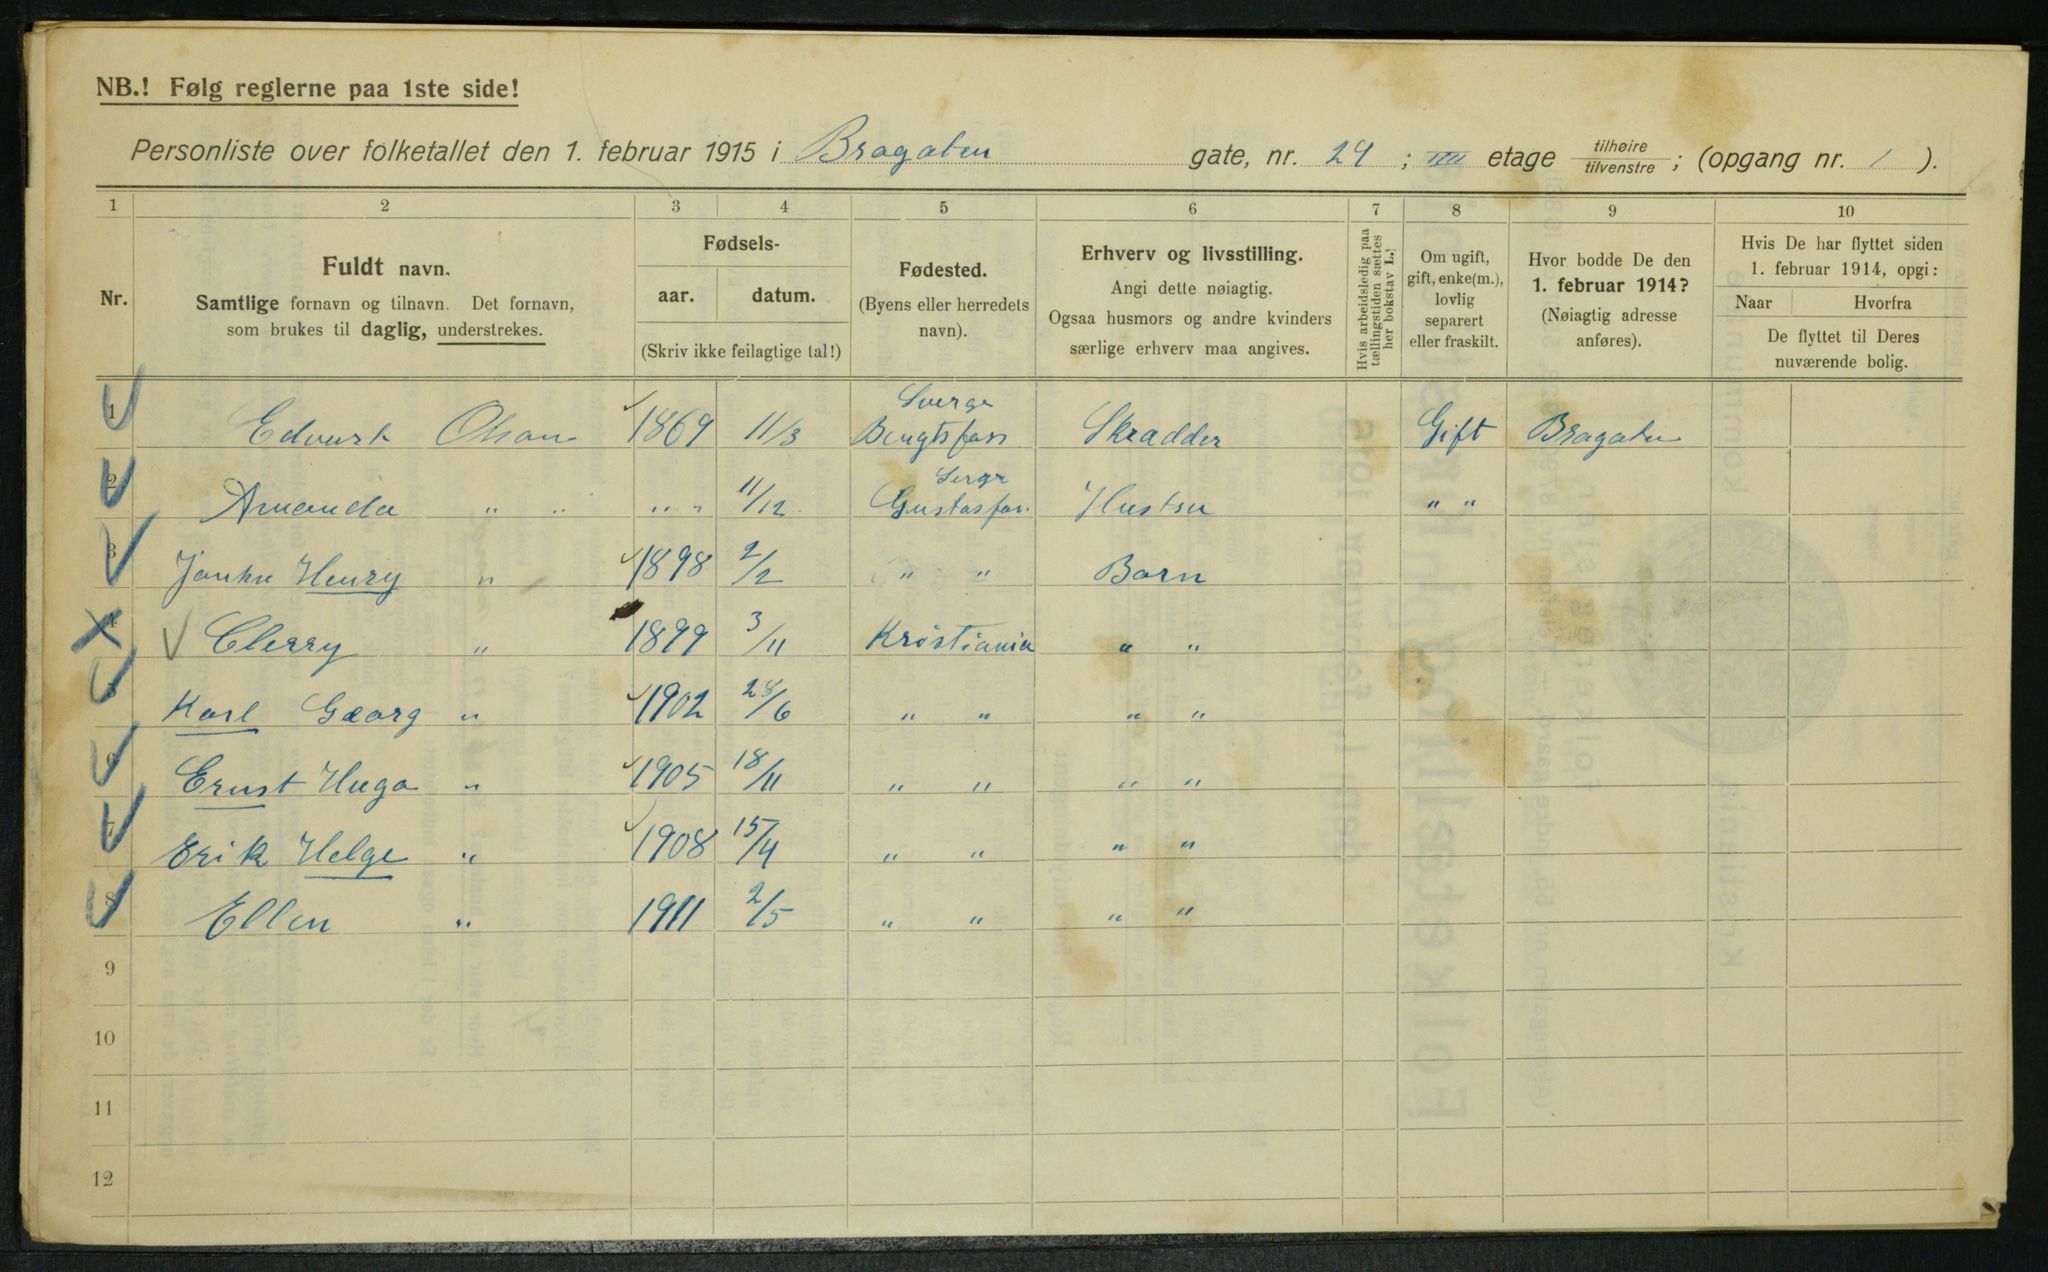 NB.! Følg reglerne paa 1ste side!
Personliste over folketallet den 1. februar 1915 i Bragaten gate, nr. 24; IIII etage tilhøire/tilvenstre; (opgang nr. 1).
1 2 3 4 5 6 7 8 9 10
Nr.
Fuldt navn.
Samtlige fornavn og tilnavn. Det fornavn,
som brukes til daglig, understrekes.
Fødsels-
aar. datum.
(Skriv ikke feilagtige tal!)
Fødested.
(Byens eller herredets
navn).
Erhverv og livsstilling.
Angi dette nøiagtig.
Ogsaa husmors og andre kvinders
særlige erhverv maa angives.
Hvis arbeidsledig paa
tællingstiden sættes
her bokstav L.!
Om ugift,
gift, enke(m.),
lovlig
separert
eller fraskilt.
Hvor bodde De den
1. februar 1914?
(Nøiagtig adresse
anføres).
Hvis De har flyttet siden
1. februar 1914, opgi:
Naar Hvorfra
De flyttet til Deres
nuværende bolig.
1 Edvart Olsan 1869 11/3 Sverge Bengtsfors Skradder Gift Bragaten
2 Amanda " " " " 11/12 Gustasfor. Hustru " "
3 Henry " 1898 2/2 " " Barn
4 Cherry " 1899 3/11 Kristiania " "
5 Karl Georg " 1902 28/6 " " " "
6 Ernst Hugo " 1905 18/11 " " " "
7 Erik Helge " 1908 15/4 " " " "
8 Ellen " 1911 2/5 " " " "
9
10
11
12